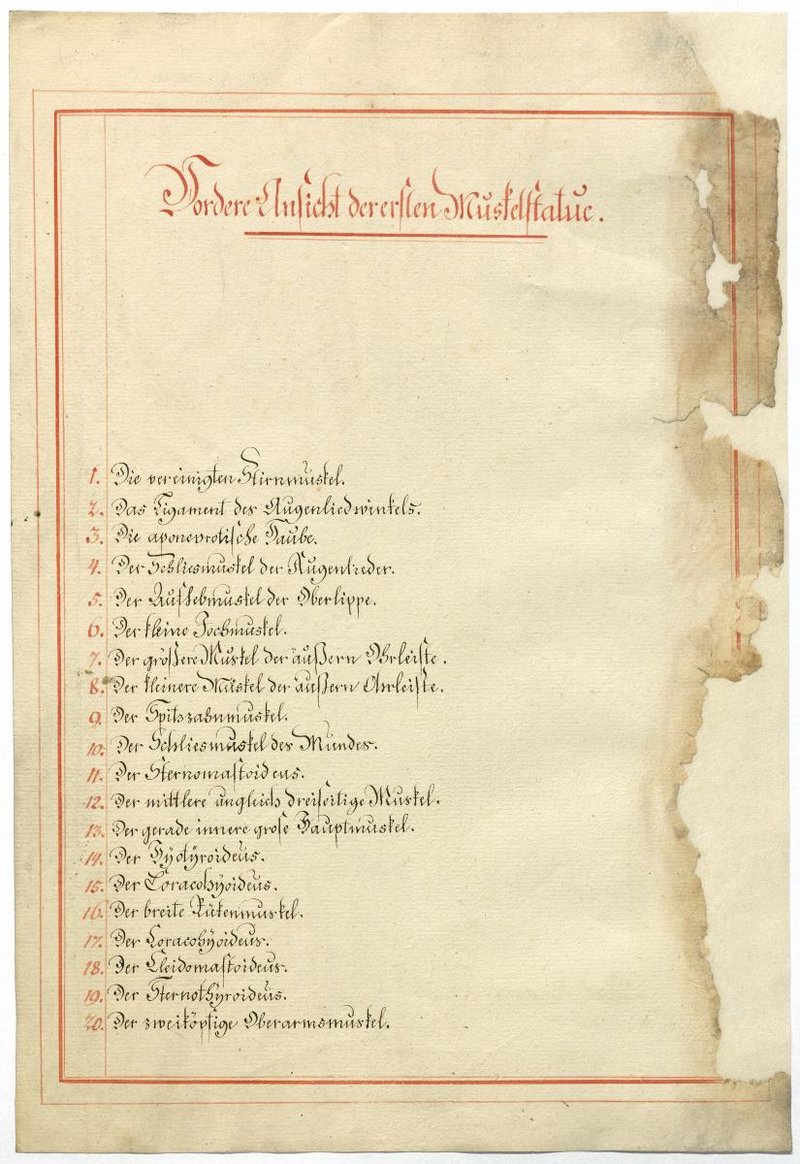 Vordere Ansicht der ersten Muskelstatue.
1. Die vereinigten Stirnmuskel.
2. Das Ligament des Augenliedwinkels.
3. Die aponevrotische Haube.
4. Der Schliesmuskel der Augenlieder.
5. Der Aufhebmuskel der Oberlippe.
6. Der kleine Jochmuskel.
7. Der größere Muskel der äußern Ohrleiste.
8. Der kleinere Muskel der äußern Ohrleiste.
9. Der Spitszahnmuskel.
10. Der Schliesmuskel des Mundes.
11. Der Sternomastoideus.
12. Der mittlere ungleich dreiseitige Muskel.
13. Der gerade innere grose Hauptmuskel.
14. Der Hyotyroideus.
15. Der Coracohyoideus.
16. Der breite Rükenmuskel.
17. Der Coracohyoideus.
18. Der Cleidomastoideus.
19. Der Sternothyroideus.
20. Der zweiköpfige Oberarmsmuskel.